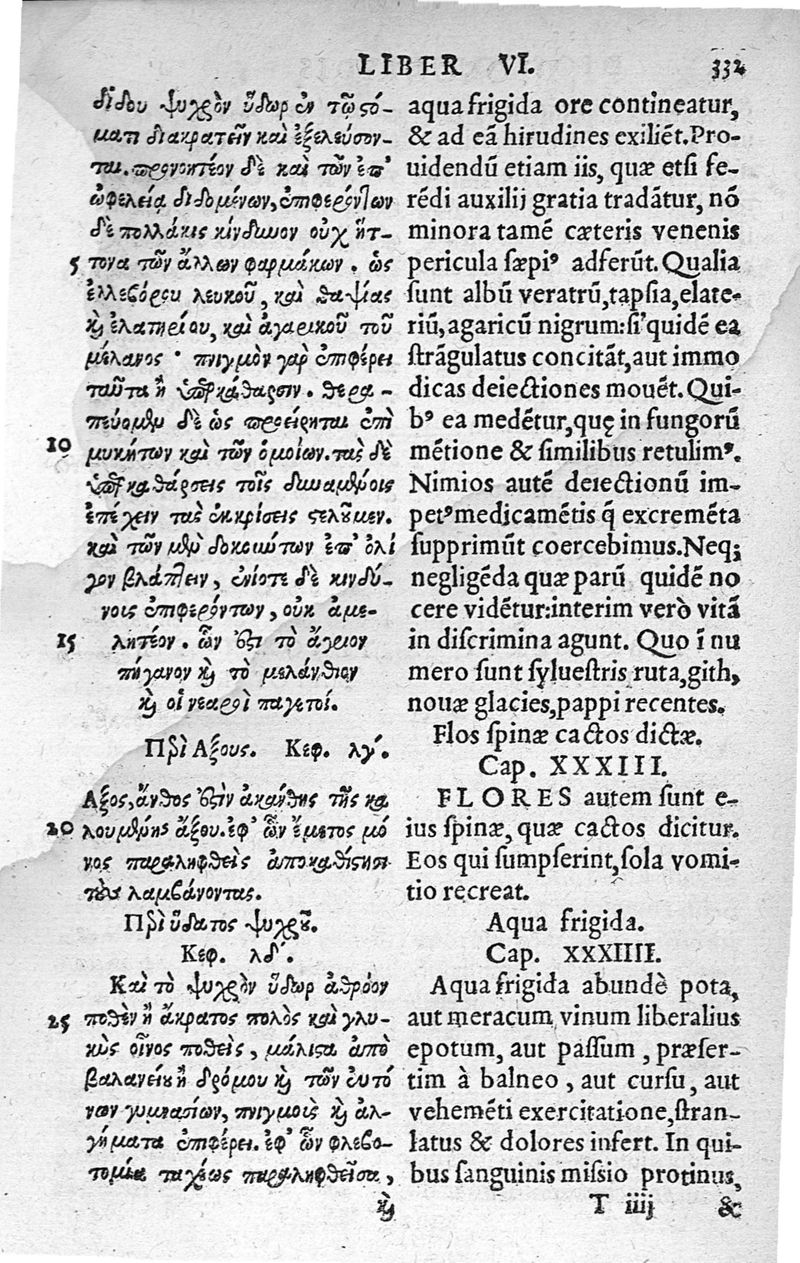 LIBER VI. 332
δίδου ψυχρὸν ὕδωρ ἐν τῷ στό-
ματι διακρατεῖν καὶ ἐξελεύσον-
ται. προνοητέον δὲ καὶ τῶν ἐπ’
ὠφελείᾳ διδομένων, ἐπιφερόντων
δὲ πολλάκις κίνδυνον οὐχ ἥτ-
5 τονα τῶν ἄλλων φαρμάκων. ὡς
ἑλλεβόρου λευκοῦ, καὶ θαψίας
καὶ ἐλατηρίου, καὶ ἀγαρικοῦ τοῦ
μέλανος· πνιγμὸν γὰρ ἐπιφέρει
ταῦτα ἢ ὑπερκάθαρσιν. θερα-
πεύομεν δὲ ὡς προείρηται ἐπὶ
10 μυκήτων καὶ τῶν ὁμοίων. τὰς δὲ
ὑπερκαθάρσεις τοῖς δυναμένοις
ἐπέχειν τὰς ἐκκρίσεις στελοῦμεν.
καὶ τῶν μὲν δοκούντων ἐπ’ ὀλί
γον βλάπτειν, ἐνίοτε δὲ κινδύ-
νοις ἐπιφερόντων, οὐκ ἀμε-
15 λητέον. ὧν ἐστι τὸ ἄγριον
πήγανον καὶ τὸ μελάνθιον
καὶ οἱ νεαροὶ παγετοί.
Περὶ Αξους. Κεφ. λγ΄.
Αξος, ἄνθος ἐστὶν ἀκάνθης τῆς κα
20 λουμένης ἄξου. ἐφ’ ὧν ἔμετος μό
νος παραληφθεὶς ἀποκαθίστησι
τοὺς λαμβάνοντας.
Περὶ ὕδατος ψυχροῦ.
Κεφ. λδ΄.
Καὶ τὸ ψυχρὸν ὕδωρ ἀθρόον
25 ποθὲν ἢ ἄκρατος πολὺς καὶ γλυ-
κὺς οἶνος ποθεὶς, μάλιστα ἀπὸ
βαλανείου ἢ δρόμου καὶ τῶν εὐτό
νων γυμνασίων, πνιγμοὺς καὶ ἀλ-
γήματα ἐπιφέρει. ἐφ’ ὧν φλεβο-
τομία ταχέως παραληφθεῖσα,
καὶ
aqua frigida ore contineatur,
& ad eā hirudines exiliēt. Pro-
uidendū etiam iis, quæ etsi fe-
rēdi auxilij gratia tradātur, nō
minora tamē cæteris venenis
pericula sæpi⁹ adferūt. Qualia
sunt albū veratrū, tapsia, elate-
riū, agaricū nigrum: siquidē ea
strāgulatus concitāt, aut immo
dicas deiectiones mouēt. Qui-
b⁹ ea medētur, quę in fungorū
mētione & similibus retulim⁹.
Nimios autē deiectionū im-
pet⁹ medicamētis q̄ excremēta
supprimūt coercebimus. Neq;
negligēda quæ parū quidē no
cere vidētur: interim verò vitā
in discrimina agunt. Quo ī nu
mero sunt syluestris ruta, gith,
nouæ glacies, pappi recentes.
Flos spinæ cactos dictæ.
Cap. XXXIII.
FLORES autem sunt e-
ius spinæ, quæ cactos dicitur.
Eos qui sumpserint, sola vomi-
tio recreat.
Aqua frigida.
Cap. XXXIIII.
Aqua frigida abundè pota,
aut meracum vinum liberalius
epotum, aut passum, præser-
tim à balneo, aut cursu, aut
vehemēti exercitatione, stran-
latus & dolores infert. In qui-
bus sanguinis missio protinus,
T iiij &